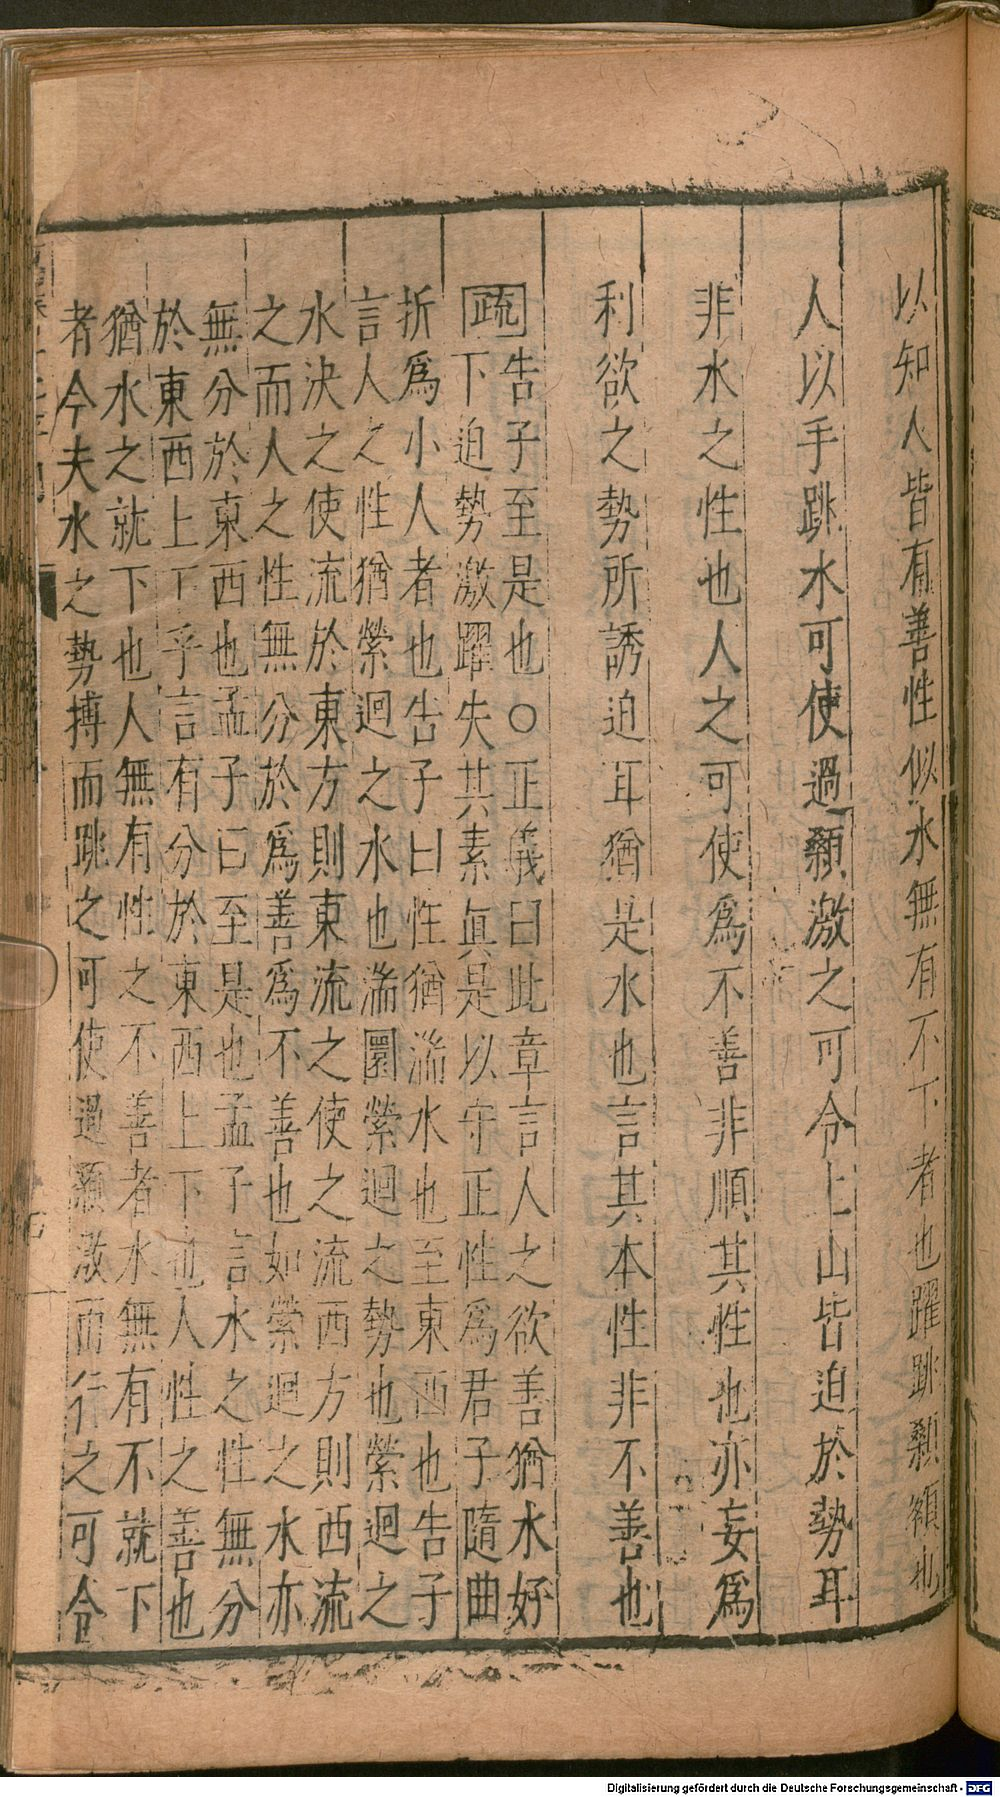 以知人皆有善性似水無有不下者也躍跳顙額也
人以手跳水可使過顙激之可令上山皆迫於勢耳
非水之性也人之可使爲不善非順其性也亦妄爲
利欲之勢所誘迫耳猶是水也言其本性非不善也
疏告子至是也○正義曰此章言人之欲善猶水好
下迫勢激躍失其素眞是以守正性爲君子隨曲
折爲小人者也告子曰性猶湍水也至東西也告子
言人之性猶縈迴之水也湍圜縈迴之勢也縈迴之
水決之使流於東方則東流之使之流西方則西流
之而人之性無分於爲善爲不善也如縈迴之水亦
無分於東西也孟子曰至是也孟子言水之性無分
於東西上下乎言有分於東西上下也人性之善也
猶水之就下也人無有性之不善者水無有不就下
者今夫水之勢搏而跳之可使過顙激而行之可令
Digitalisierung gefördert durch die Deutsche Forschungsgemeinschaft - DFG